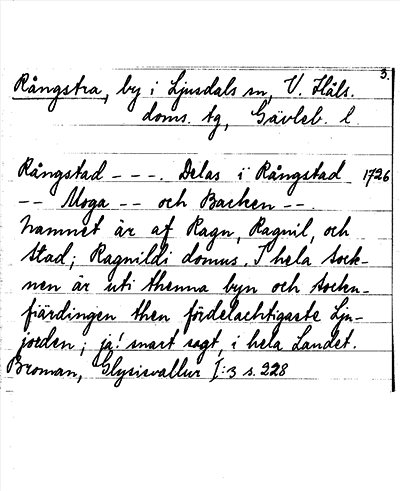 3.
Rångstra, by i Ljusdals sn, V. Häls.
doms. tg, Gävleb. l.
Rångstad - - -. Delas i Rångstad 1726
- - Moga - - och Backen - -.
Namnet är af Ragn, Ragnil, och
Stad; Ragnildi domus. I hela sock-
nen är uti thenna byn och socken-
fiärdingen then fördelachtigaste Ljn-
jorden; ja! snart sagt, i hela Landet.
Broman, Glysisvallur I:3 s. 228